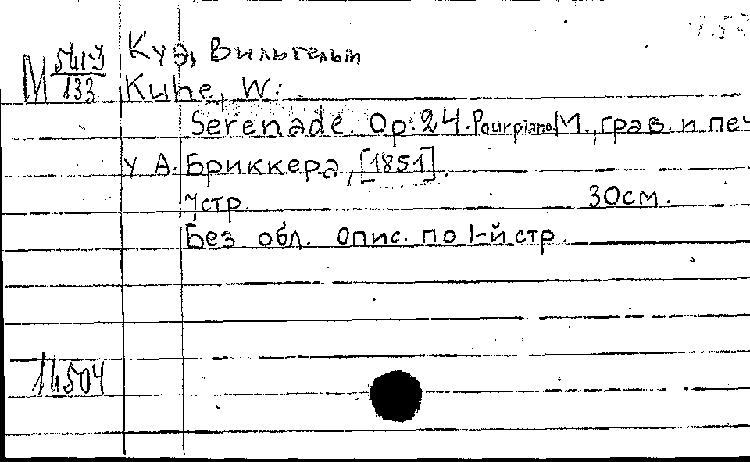 Куэ, Вильгельм
М 133
Kuhe, W:
Serenade. Op. 24. Pour piano. М., грав. и печ
у А. Бриккера, [1851].
7стр 30см.
Без обл. Опис. по 1-й стр.